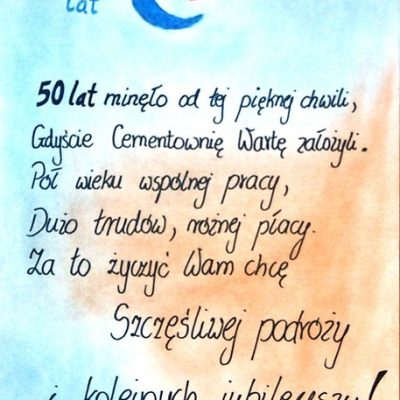 lat
50 lat minęło od tej pięknej chwili,
Gdyście Cementownię Wartę założyli.
Pół wieku wspólnej pracy,
Dużo trudów, różnej płacy.
Za to życzyć Wam chcę
Szczęśliwej podroży
i kolejnych jubileuszy!